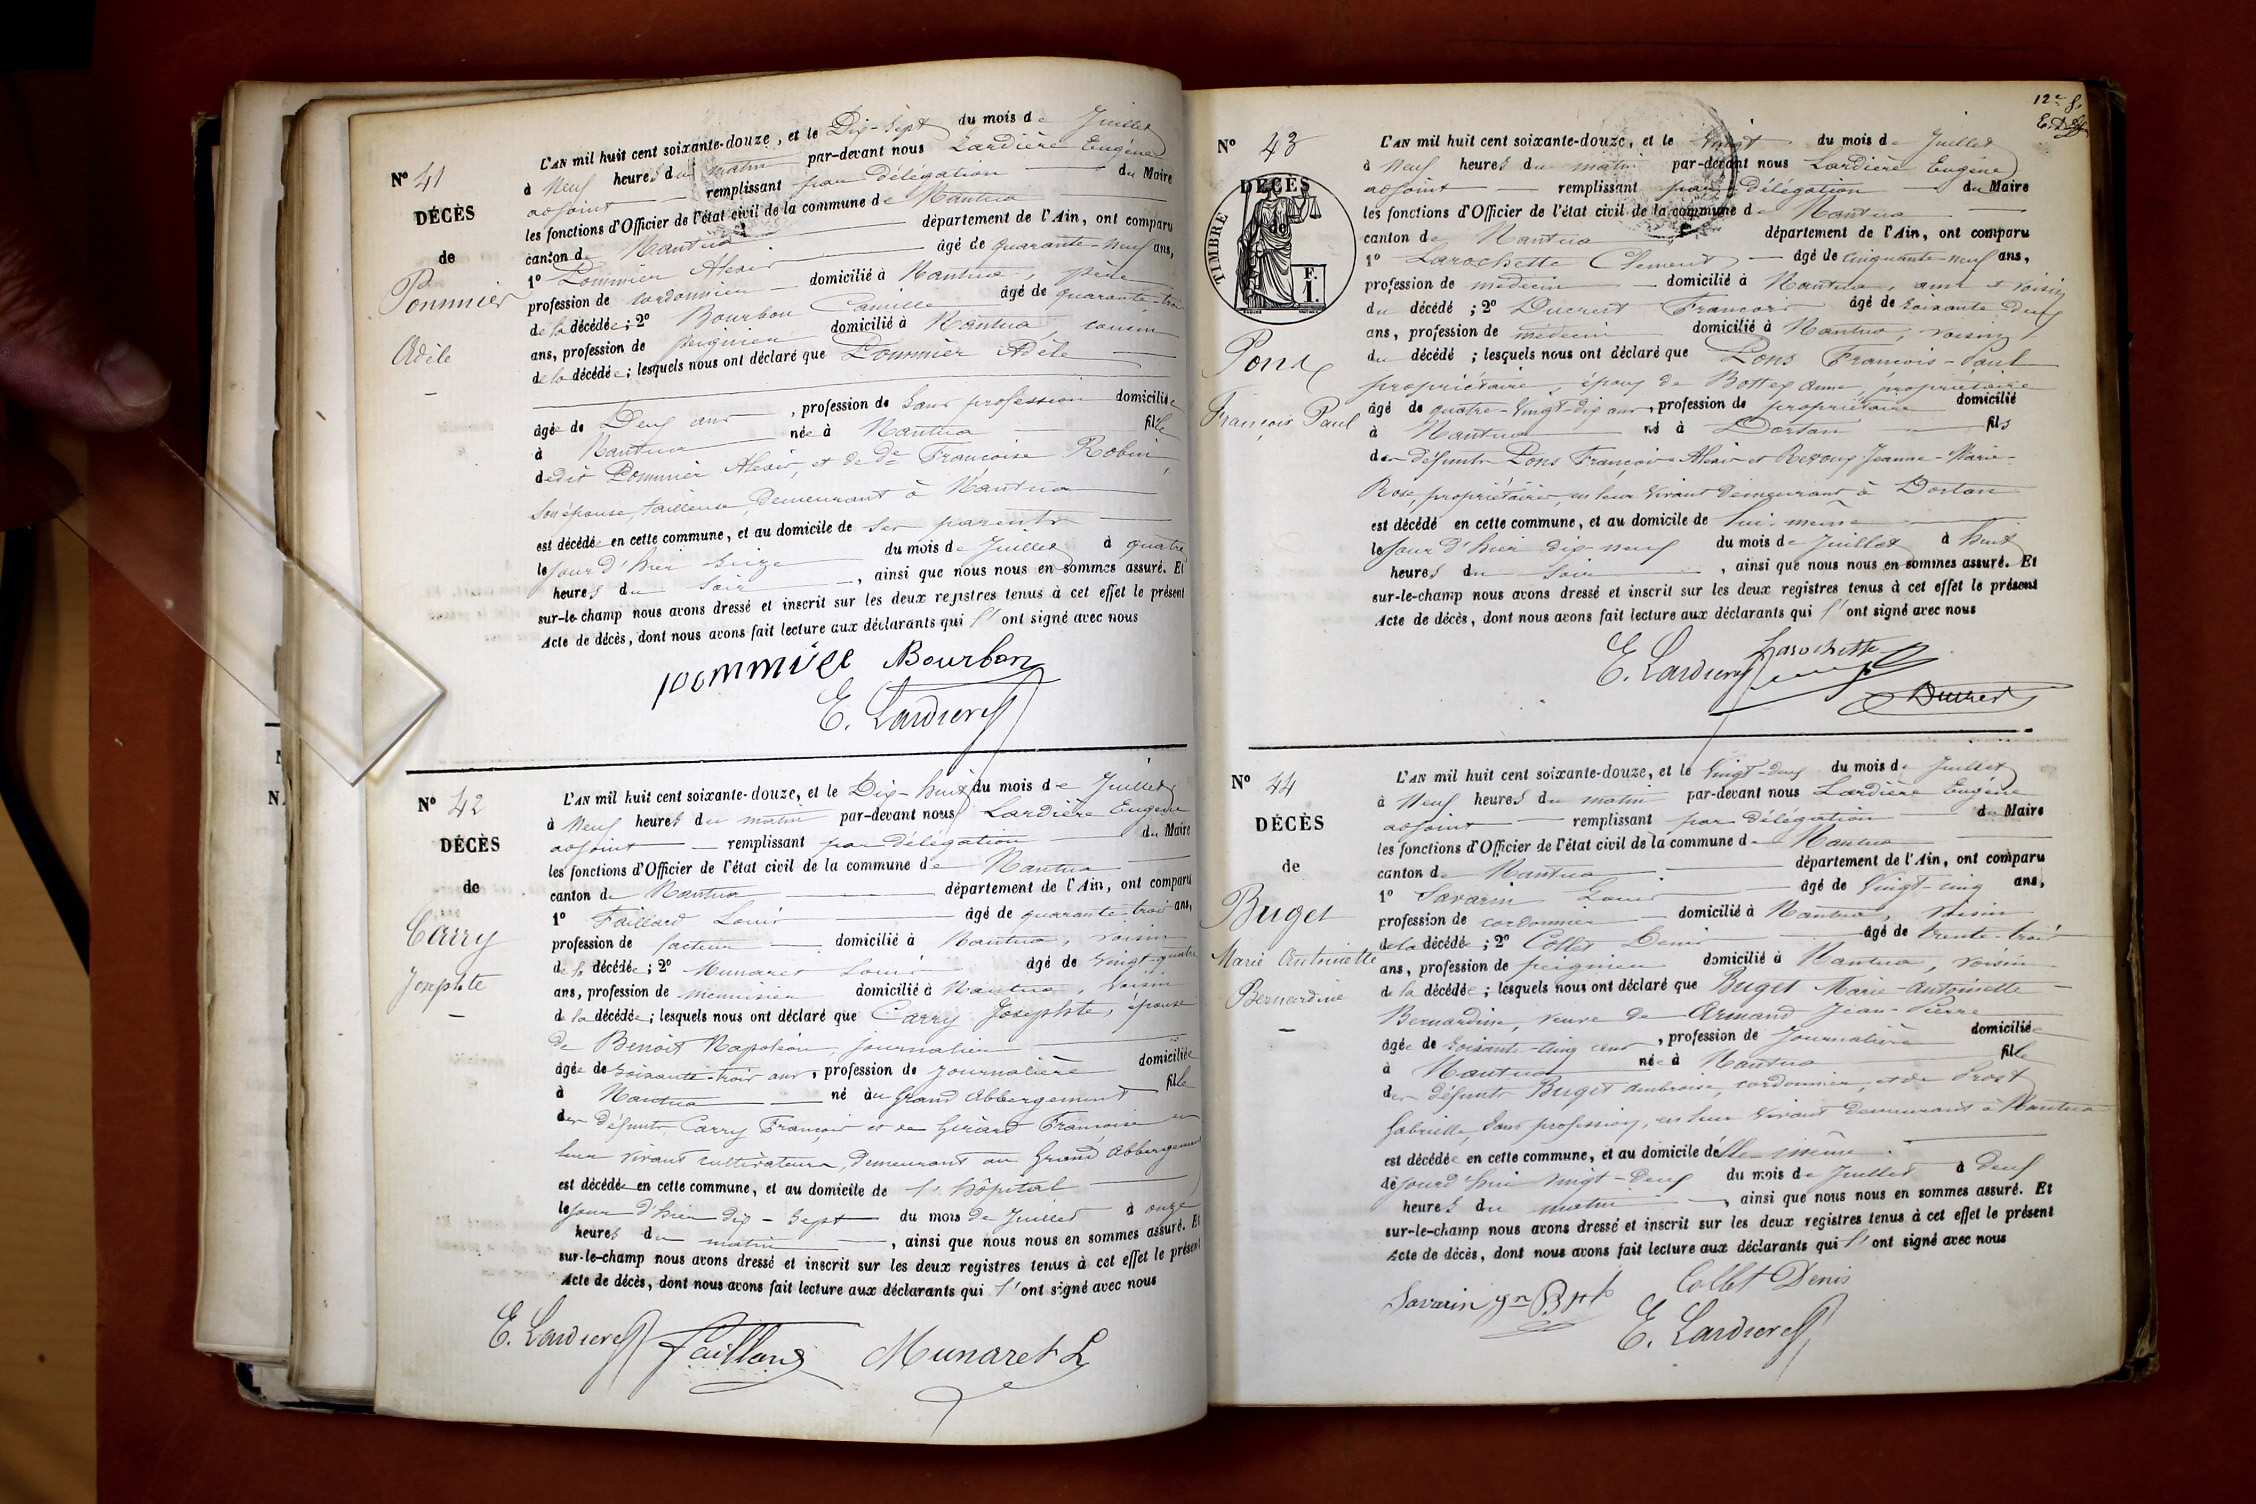 N° 41
DÉCÈS
de
Pommier
Adèle
L'AN mil huit cent soixante-douze, et le Dix-sept du mois de Juillet
à Neuf heures du matin par-devant nous Lardière Eugène
adjoint remplissant par délégation du Maire
les fonctions d'Officier de l'état civil de la commune de Nantua
canton de Nantua département de l'Ain, ont comparu
1° Pommier Alexis âgé de quarante-neuf ans,
profession de cordonnier domicilié à Nantua, père
de la décédée; 2° Bourbon Camille âgé de quarante-trois
ans, profession de peignier domicilié à Nantua, cousin
de la décédée; lesquels nous ont déclaré que Pommier Adèle
âgée de Deux ans, profession de sans profession domiciliée
à Nantua née à Nantua fille
dedit Pommier Alexis, et de de Françoise Robin,
son épouse, tailleuse, demeurant à Nantua
est décédée en cette commune, et au domicile de ses parents
le jour d'hier seize du mois de Juillet à quatre
heures du soir, ainsi que nous nous en sommes assuré. Et
sur-le-champ nous avons dressé et inscrit sur les deux registres tenus à cet effet le présent
Acte de décès, dont nous avons fait lecture aux déclarants qui l'ont signé avec nous
pommier Bourbon
E. Lardière
N° 42
DÉCÈS
de
Carry
Josephte
L'AN mil huit cent soixante-douze, et le Dix-huit du mois de Juillet
à Neuf heures du matin par-devant nous Lardière Eugène
adjoint remplissant par délégation du Maire
les fonctions d'Officier de l'état civil de la commune de Nantua
canton de Nantua département de l'Ain, ont comparu
1° Faillard Louis âgé de quarante-trois ans,
profession de facteur domicilié à Nantua, voisin
de la décédée; 2° Munaret Louis âgé de vingt-quatre
ans, profession de menuisier domicilié à Nantua, voisin
de la décédée; lesquels nous ont déclaré que Carry Josephte, épouse
de Benoît Napoléon, journalier
âgée de soixante-trois ans, profession de journalière domiciliée
à Nantua né au Grand Abbergement fille
des défunts Carry François et de Girard Françoise en
leur vivant cultivateurs, demeurant au Grand Abbergement
est décédée en cette commune, et au domicile de l'hôpital
le jour d'hier dix-sept du mois de Juillet à onze
heures du matin, ainsi que nous nous en sommes assuré. Et
sur-le-champ nous avons dressé et inscrit sur les deux registres tenus à cet effet le présent
Acte de décès, dont nous avons fait lecture aux déclarants qui l'ont signé avec nous
E. Lardière Faillard Munaret L
12e f.
N° 43
DÉCÈS
de
TIMBRE
F.
1.
Pons
François Paul
L'AN mil huit cent soixante-douze, et le vingt du mois de Juillet
à Neuf heures du matin par-devant nous Lardière Eugène
adjoint remplissant par délégation du Maire
les fonctions d'Officier de l'état civil de la commune de Nantua
canton de Nantua département de l'Ain, ont comparu
1° Larochette Clement âgé de cinquante-neuf ans,
profession de médecin domicilié à Nantua, ami et voisin
du décédé; 2° Ducret François âgé de soixante deux
ans, profession de médecin domicilié à Nantua, voisin
du décédé; lesquels nous ont déclaré que Pons François-Paul
propriétaire, époux de Bottex Anne, propriétaire
âgé de quatre-vingt-dix ans, profession de propriétaire domicilié
à Nantua né à Dortan fils
des défunts Pons François-Alexis et Reydoux Jeanne-Marie-
Rose, propriétaires, en leur vivant demeurant à Dortan
est décédé en cette commune, et au domicile de lui-même
le jour d'hier dix-neuf du mois de Juillet à huit
heures du soir, ainsi que nous nous en sommes assuré. Et
sur-le-champ nous avons dressé et inscrit sur les deux registres tenus à cet effet le présent
Acte de décès, dont nous avons fait lecture aux déclarants qui l'ont signé avec nous
E. Lardière Larochette
Ducret
N° 44
DÉCÈS
de
Buget
Marie Antoinette
Bernardine
L'AN mil huit cent soixante-douze, et le vingt-deux du mois de Juillet
à Neuf heures du matin par-devant nous Lardière Eugène
adjoint remplissant par délégation du Maire
les fonctions d'Officier de l'état civil de la commune de Nantua
canton de Nantua département de l'Ain, ont comparu
1° Savarin Louis âgé de vingt-cinq ans,
profession de cordonnier domicilié à Nantua, voisin
de la décédée; 2° Collet Denis âgé de trente-trois
ans, profession de peignier domicilié à Nantua, voisin
de la décédée; lesquels nous ont déclaré que Buget Marie-Antoinette
Bernardine, veuve de Armand Jean-Pierre
âgée de soixante-cinq ans, profession de journalière domiciliée
à Nantua née à Nantua fille
des défunts Buget Ambroise, cordonnier, et de Prost
Gabrielle, sans profession, en leur vivant demeurant à Nantua
est décédée en cette commune, et au domicile d'elle-même
de jourd'hui vingt-deux du mois de Juillet à deux
heures du matin, ainsi que nous nous en sommes assuré. Et
sur-le-champ nous avons dressé et inscrit sur les deux registres tenus à cet effet le présent
Acte de décès, dont nous avons fait lecture aux déclarants qui l'ont signé avec nous
Savarin Collet Denis
E. Lardière